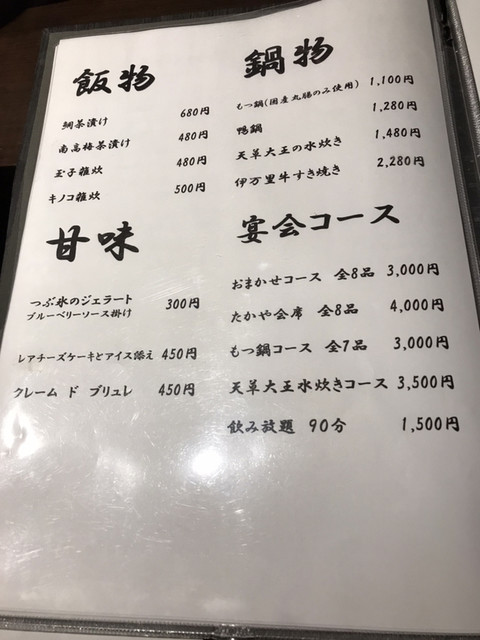 飯物
鯛茶漬け 680円
南高梅茶漬け 480円
玉子雑炊 480円
キノコ雑炊 500円
甘味
つぶ氷のジェラート 300円
ブルーベリーソース掛け
レアチーズケーキとアイス添え 450円
クレーム ド ブリュレ 450円
鍋物
もつ鍋(国産丸腸のみ使用) 1,100円
鴨鍋 1,280円
天草大王の水炊き 1,480円
伊万里牛すき焼き 2,280円
宴会コース
おまかせコース 全8品 3,000円
たかや会席 全8品 4,000円
もつ鍋コース 全7品 3,000円
天草大王水炊きコース 3,500円
飲み放題 90分 1,500円